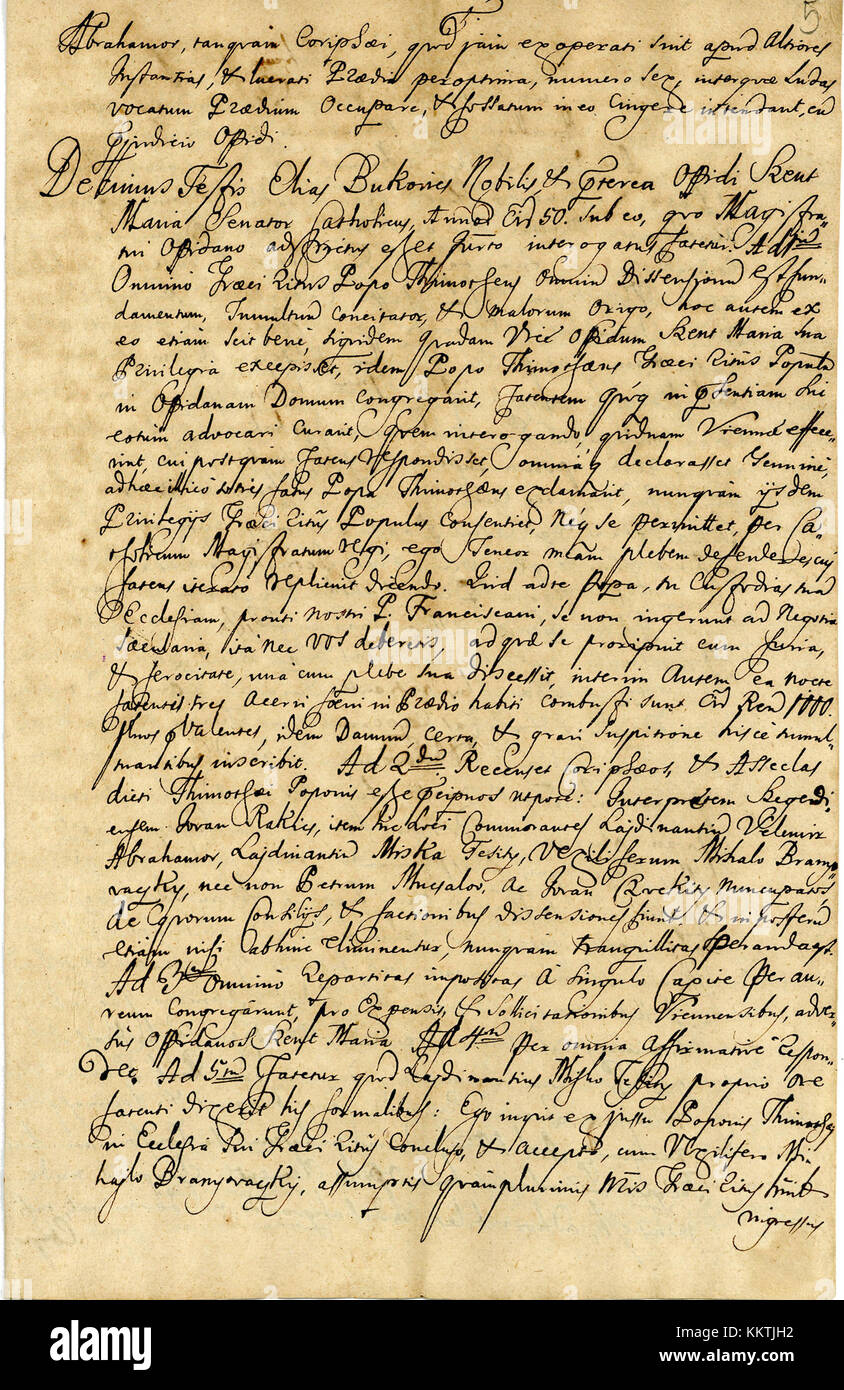 5
Abrahamor, tanquam Coriphæi, quod jam exoperati sint apud Altiores
Instantias, & lucrati Prædia peroptima, numero sex, interquæ Ludas
vocatum Prædium Occupare, & fossatum in eo Cingere intendant, cu
Opidi
Decimus Testis Elias Bukovics Nobilis & præterea Oppidi Szent
Maria Senator Catholicus, Annorū Crd 50. Sub eo, quo Magistra-
tui Oppidano adstrictus esset Jurto interogatus fatetur. Ad 1mū
Omnino Græci Ritus Popo Thimotheus Omniū Dissensionū Est fun-
damentum, Tumultuū Concitator, & malorum Origo, hoc autem ex
eo etiam scit bene, siquidem quadam Vice Oppidum Szent Maria sua
Privilegia excepisset, idem Popo Thimotheus Græci Ritus Populū
in Oppidanam Domum Congregavit, fatentem qvoq in præsentiam sui
eotum advocari Curavit, Quem interogando, quidnam Viennæ effece-
rint, cui postquam fatens respondisset, omniaq declarasset Genuine,
ad hæc illico totus Popa Thimotheus exclamavit, nunquam ijsdem
Privilegijs Græci Ritus Populus Consentiet, Neq se permittet, per Ca-
tholicum Magistratum regi, ego Teneor meam plebem defendere, cui
fatens iterato replicuit dicendo. Quid ad te Popa, tu Custodias tuā
Ecclesiam, prouti nostri P. Franciscani, se non ingerunt ad Negotia
Sæcularia, ita nec vos deberetis, ad quæ se proripuit cum furia,
& ferocitate, una cum plebe sua discessit, interim Autem ea nocte
fatentis tres Acervi fœni in Prædio habiti Combusti sunt Crd Ren 1000.
plus Valentes, idem Damnū, certa, & gravi suspitione hisce tumul-
tuantibus inscribit. Ad 2dum Recenset Coriphæos, & Asseclas
dicti Thimothei Poponis esse præcipuos utpote: Interpretem Szegedi-
ensem Jovan Rakics, item hic Loci Commorantes Lajdinantiū Velimir
Abrahamor, Lajdinantiū Miska Tesity, Vexilliferum Mihalo Branyo-
vaczky, nec non Petrum Mucsalov, ac Jovan Czvekity nuncupatos,
de Quorum Consilijs, & factionibus dissensiones fiunt, & in posterū
etiam nisi abhinc eliminentur, nunquam tranquillitas Speranda est.
Ad 3um Omnino Repartitas impositas A singulo Capite per au-
reum Congregarunt, pro Expensis, & Sollicitationibus Viennensibus, adver-
sus Oppidanos Szent Maria Ad 4um Per omnia Affirmative Respon-
det. Ad 5um Fatetur quod Lajdinantius Misko Tesity proprio Ore
fatenti dixerit his formalibus: Ego inquit ex jussu Poponis Thimothei
in Ecclesia Græci Ritus Concluso, & Accepto, cum Vexilifero Mi-
hajlo Branyovaczky, assumptis quamplurimis Græci Ritus
ingressus
alamy
Image ID: KKTJH2
www.alamy.com